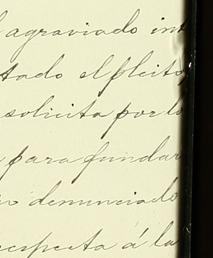 agraviado int
tado el pleito,
solicita por lo
para fundar
denunciado
respecta á la